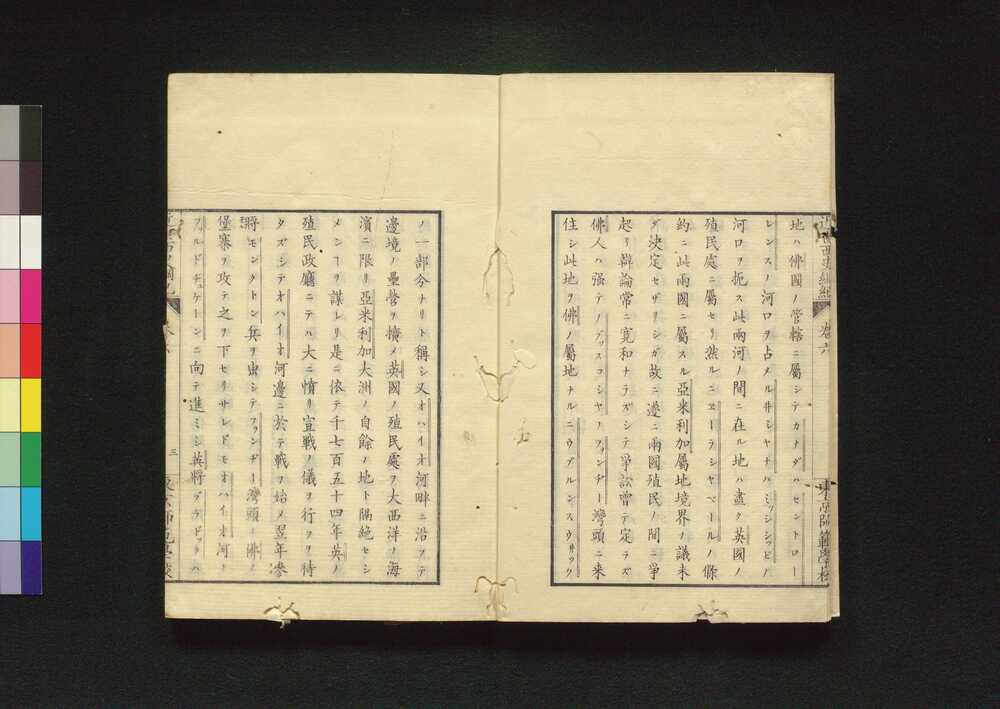 地ハ佛國ノ管轄ニ屬シテカナダハセントロー
レンスノ河口ヲ占メルヰシヤナハミッシッピノ
河口ヲ扼ス此兩河ノ間ニ在ル地ハ盡ク英國ノ
殖民處ニ屬セリ然ルニヱーラシヤペールノ條
約ニ此兩國ニ屬スル亞米利加屬地境界ノ議未
ダ決定セザリシガ故ニ遂ニ兩國殖民ノ間ニ爭
起リ辯論常ニ寛和ナラズシテ爭訟曾テ定テズ
佛人ハ强テノヴァスコシヤノファンヂー灣頭ニ來
住シ此地ヲ佛ノ屬地ナルニウブルンスウヰック
卷六
東京師範學校
ノ一部分ナリト稱シ又オハイオ河畔ニ沿フテ
邊境ノ壘營ヲ擴メ英國ノ殖民處ヲ大西洋ノ海
濱ニ限リ亞米利加大洲ノ自餘ノ地ト隔絶セシ
メン丁ヲ謀レリ是ニ依テ千七百五十四年英ノ
殖民政廳ニテハ大ニ憤リ宣戰ノ儀ヲ行フヲ待
タズシテオハイオ河邊ニ於テ戰ヲ始メ翌年參
將モンクトン兵ヲ出シテファンヂー灣頭ノ佛ノ
堡寨ヲ攻テ之ヲ下セリサレドモオハイオ河ノ
フルドヂュケーンニ向テ進ミシ英將ブラドックハ
三